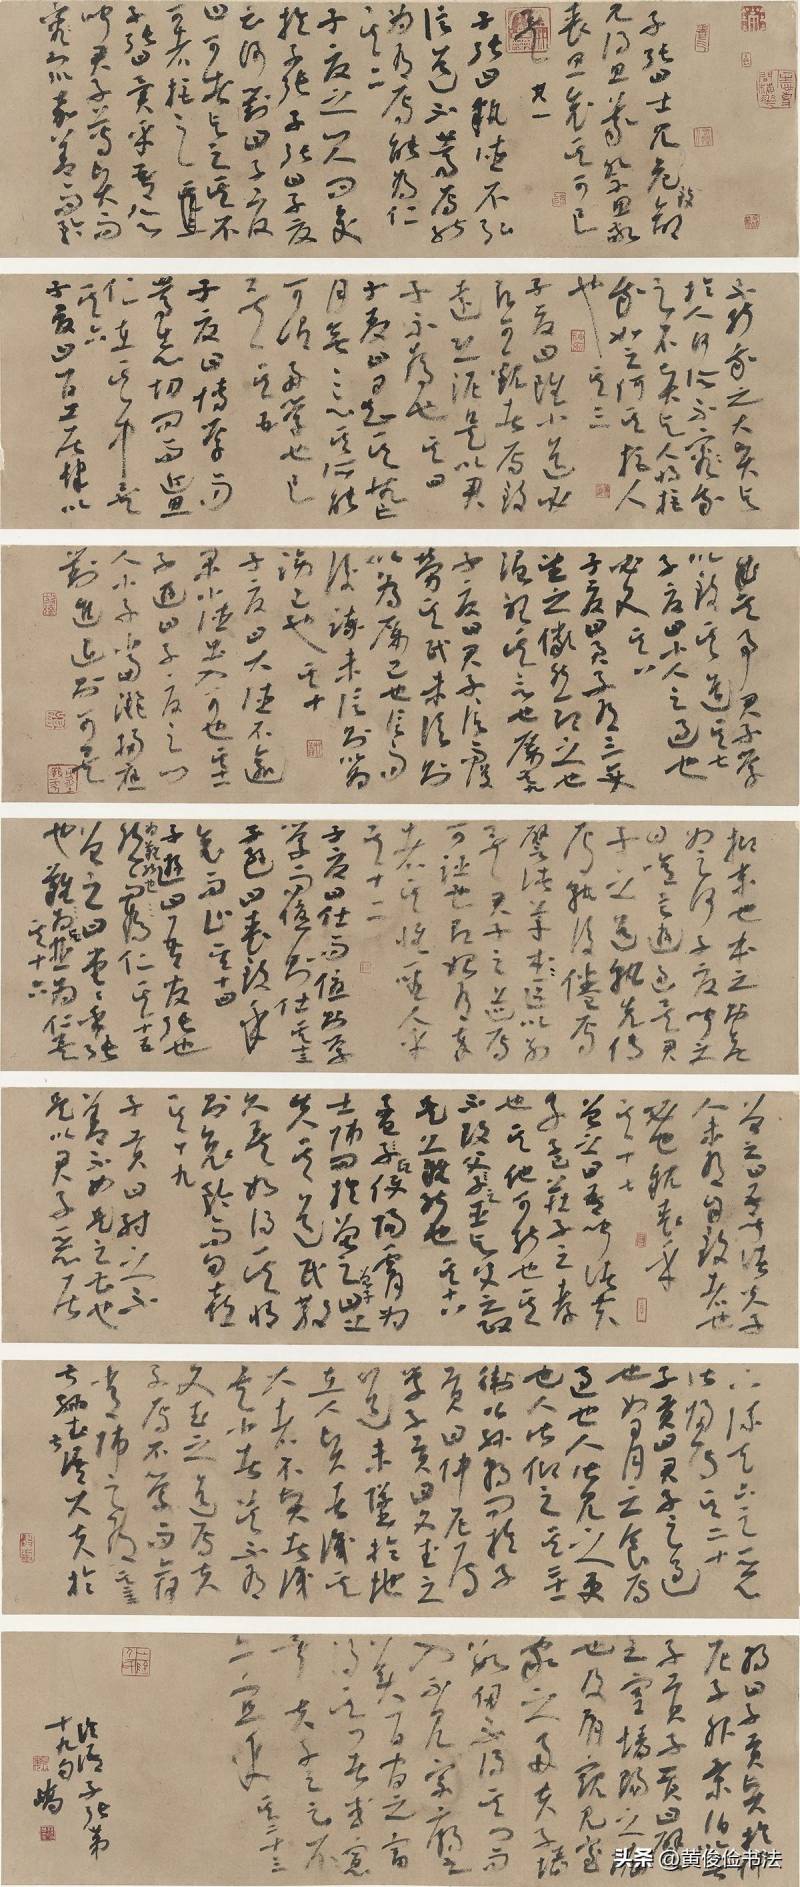 子張曰士見危致命
見得思義祭思敬
喪思哀其可已
矣 其一
子張曰執德不弘
信道不篤焉能
為有焉能為亡
其二
子夏之門人問交
於子張子張曰子夏
云何對曰子夏
曰可者與之其不
可者拒之
子張曰異乎吾所
聞君子尊賢而
容眾嘉善而矜
不能我之大賢與
於人何所不容我
之不賢與人將拒
我如之何其拒人
也 其三
子夏曰雖小道必
有可觀者焉致
遠恐泥是以君
子不為也 其四
子夏曰日知其所亡
月無忘其所能
可謂好學也已
矣 其五
子夏曰博學而
篤志切問而近思
仁在其中矣
其六
子夏曰百工居肆以
成其事君子學
以致其道 其七
子夏曰小人之過也
必文 其八
子夏曰君子有三變
望之儼然即之也
溫聽其言也厲 其九
子夏曰君子信而後
勞其民未信則
以為厲己也信而
後諫未信則以為
謗己也 其十
子夏曰大德不逾
閑小德出入可也 其十一
子游曰子夏之門
人小子當灑掃應
對進退則可矣
抑末也本之則無
如之何子夏聞之
曰噫言游過矣君
子之道孰先傳
焉孰後倦焉
譬諸草木區以別
矣君子之道焉
可誣也有始有卒
者其惟聖人乎
其十二
子夏曰仕而優則學
學而優則仕 其十三
子游曰喪致乎
哀而止 其十四
子游曰吾友張也
為難能也
然而未仁 其十五
曾子曰堂堂乎張
也難與並為仁矣
其十六
曾子曰吾聞諸夫子
人未有自致者也
必也親喪乎
其十七
曾子曰吾聞諸夫
子孟莊子之孝
也其他可能也其
不改父之臣與父之政
是難能也 其十八
孟氏使陽膚為
士師問於曾子曾子曰上
失其道民散
久矣如得其情
則哀矜而勿喜
其十九
子貢曰紂之不
善不如是之甚也
是以君子惡居
下流天下之惡
皆歸焉 其二十
子貢曰君子之過
也如日月之食焉
過也人皆見之更
也人皆仰之 其二十一
衛公孫朝問於子
貢曰仲尼焉
學子貢曰文武之
道未墜於地
在人賢者識其
大者不賢者識
其小者莫不有
文武之道焉夫
子焉不學而亦
何常師之有 其二十二
叔孫武叔語大夫於
朝曰子貢賢於仲
尼子服景伯以告
子貢子貢曰譬
之宮牆賜之牆
也及肩窺見室
家之好夫子之牆
數仞不得其門而
入不見宗廟之
美百官之富
得其門者或寡
矣夫子之云不
亦宜乎 其二十三
論語子張第
十九句
头条 @黄俊俭书法